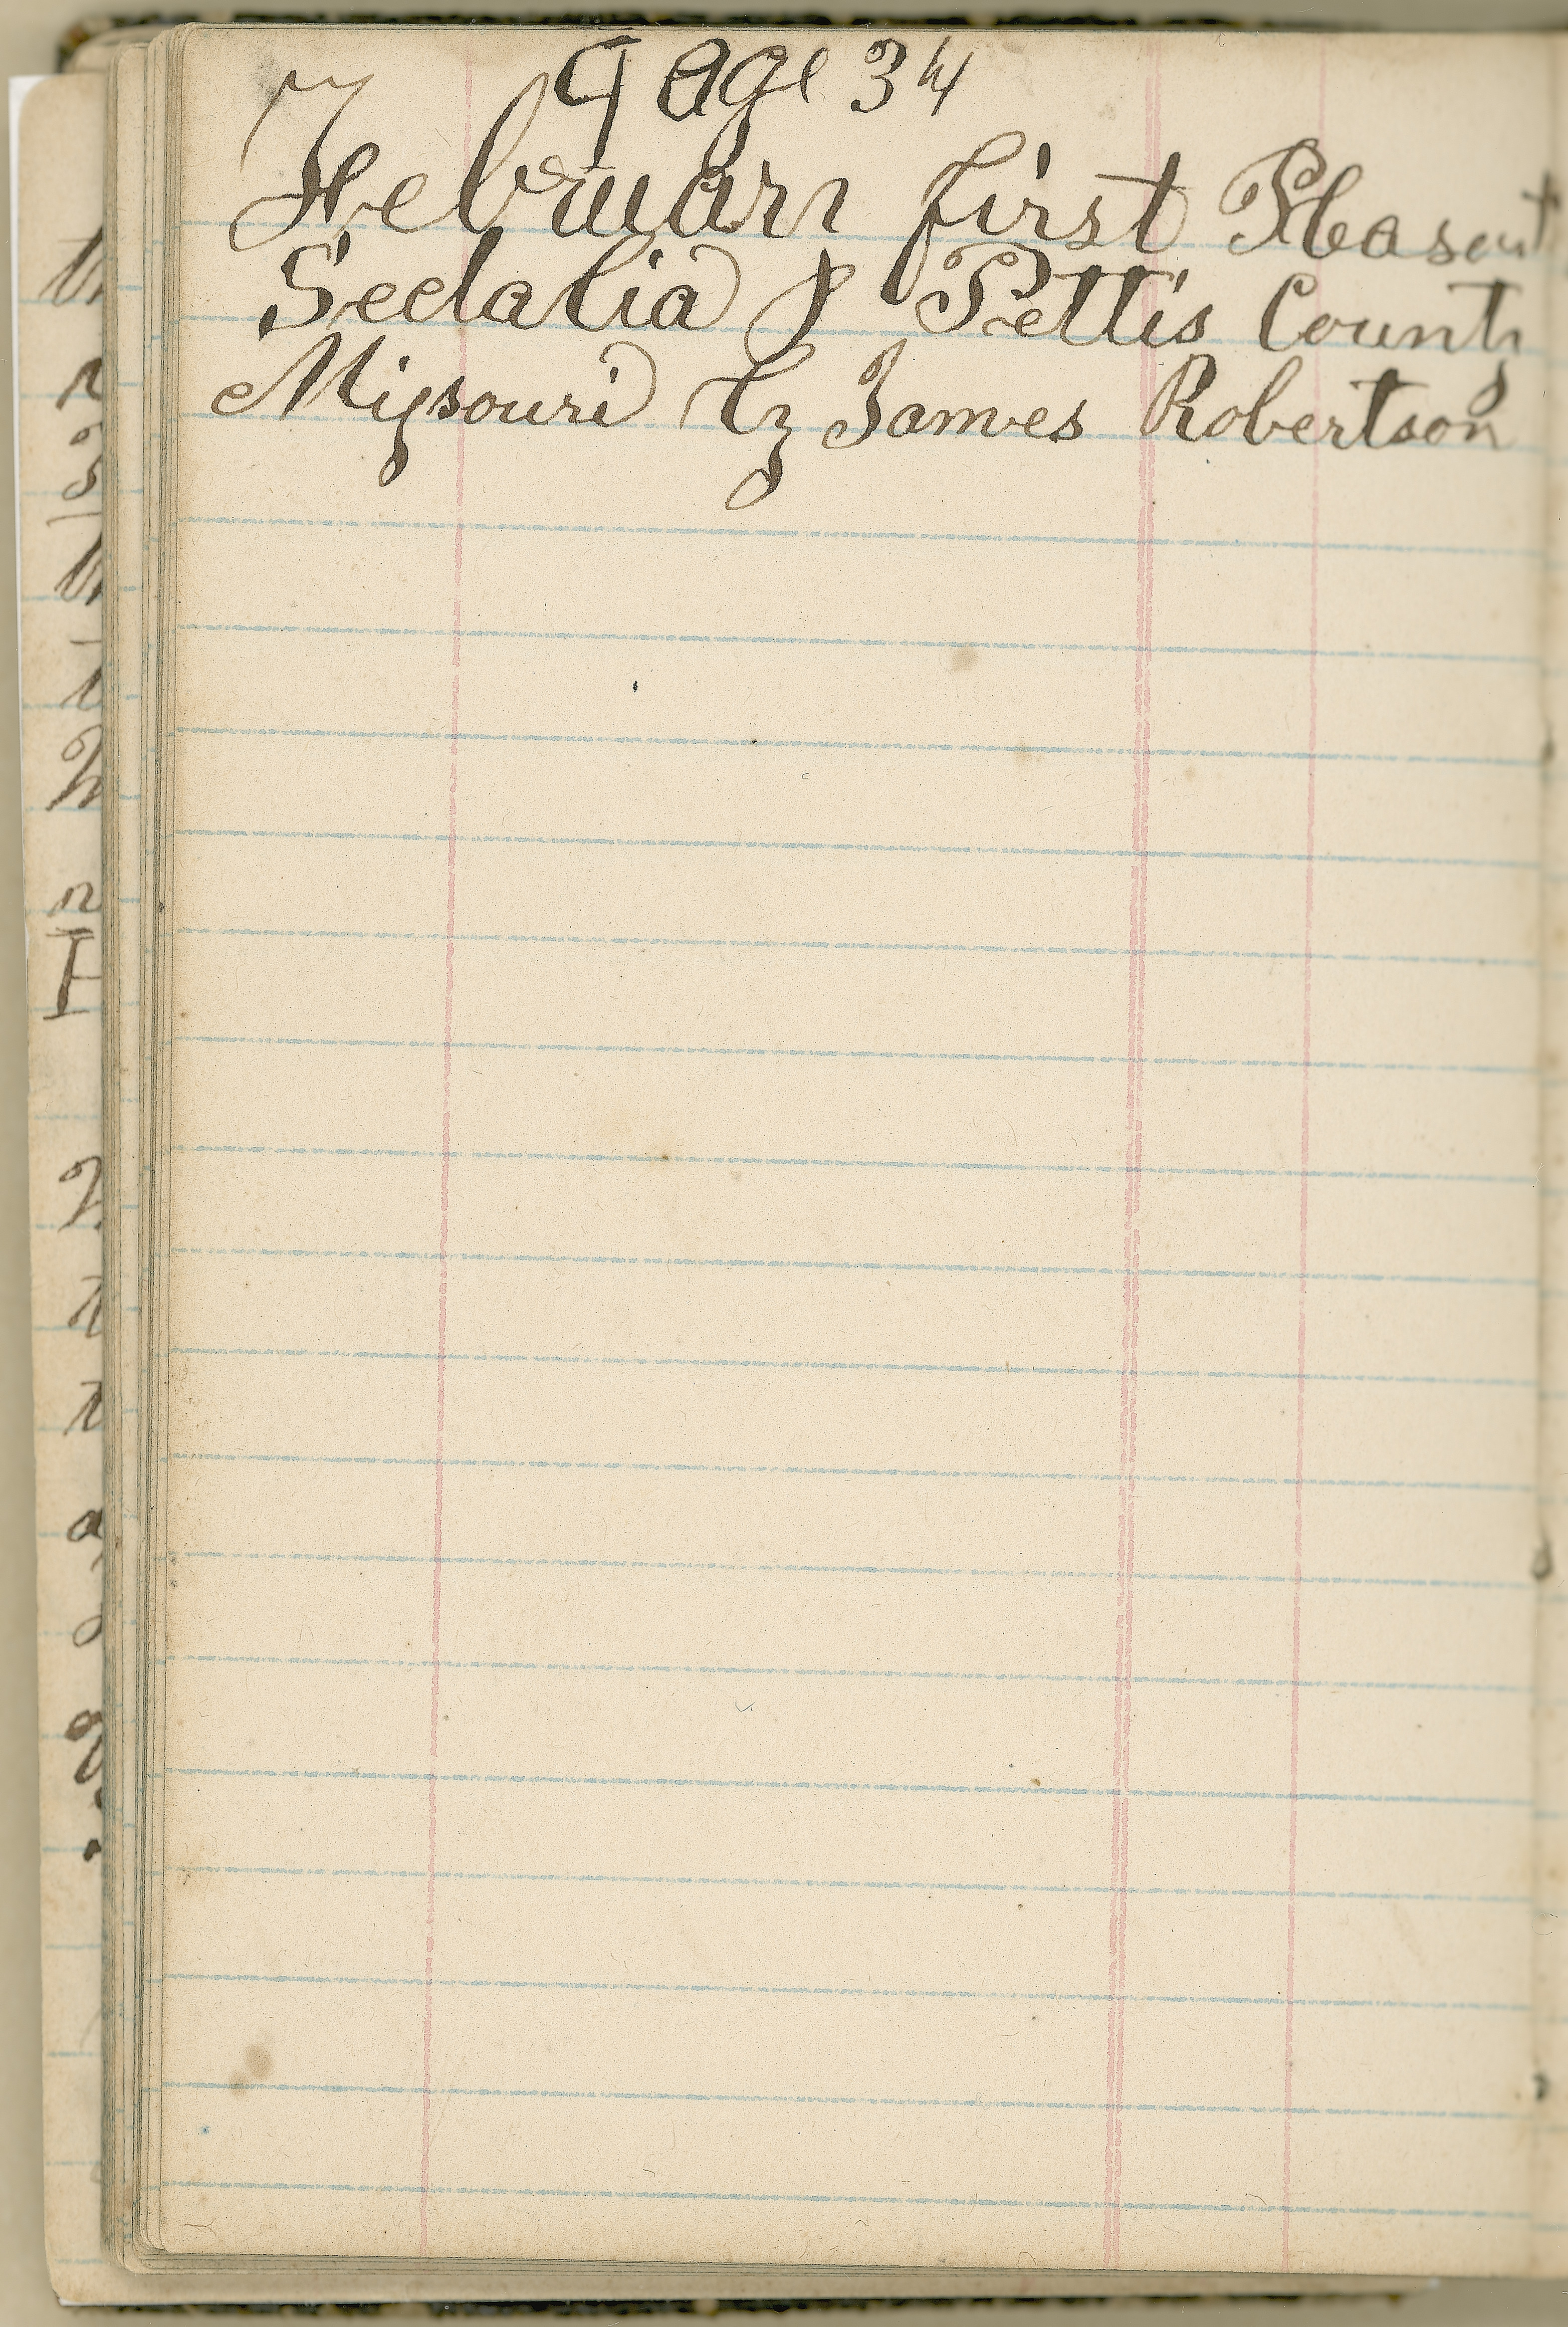 Page 34
February first Pleasent
Sedalia & Pettis County
Missouri by James Robertson